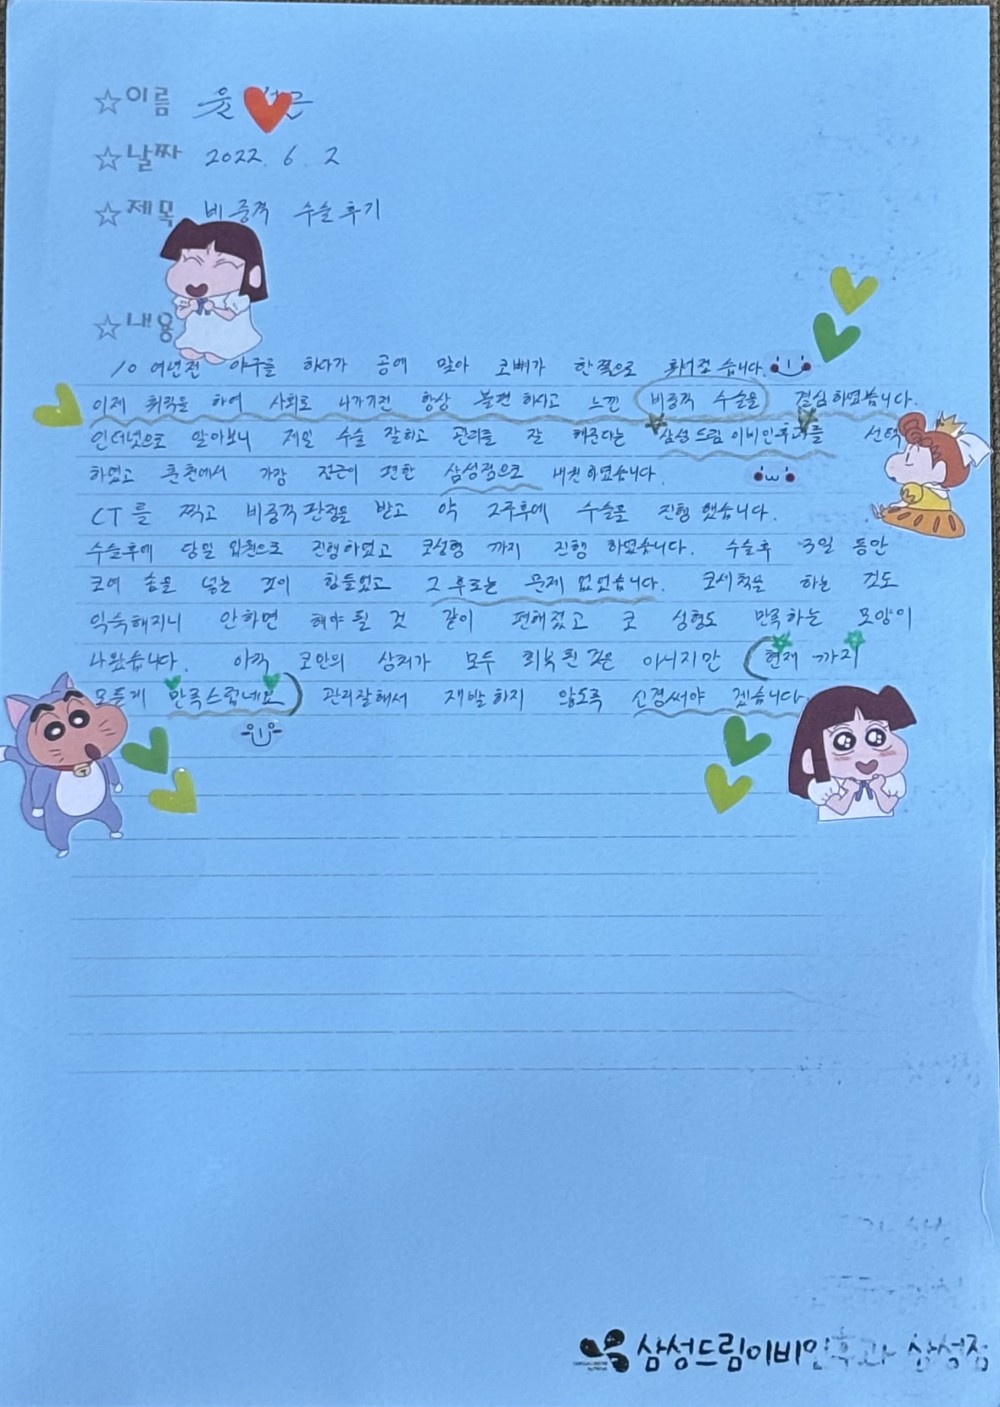 ☆이름 윤
☆날짜 2022. 6. 2
☆제목 비중격 수술후기
☆내용
10여년전 야구를 하다가 공에 맞아 코뼈가 한쪽으로 휘어졌습니다.
이제 취직을 하여 사회로 나가기전 항상 불편하시고 느낀 비중격 수술을 결심하였습니다.
인터넷으로 알아보니 제일 수술 잘하고 관리를 잘 해준다는 삼성드림이비인후과를 선택
하였고 춘천에서 가장 접근이 편한 삼성점으로 내원하였습니다.
CT를 찍고 비중격판정을 받고 약 2주후에 수술을 진행했습니다.
수술후에 당일 입원으로 진행하였고 코성형 까지 진행 하였습니다. 수술후 3일 동안
코에 솜을 넣는 것이 힘들었고 그 후로는 문제 없었습니다. 코세척을 하는 것도
익숙해지니 안하면 해야 될 것 같이 편해졌고 코 성형도 만족하는 모양이
나왔습니다. 아직 코안의 상처가 모두 회복된 것은 아니지만 (현재 까지
모든게 만족스럽네요) 관리잘해서 재발하지 않도록 신경써야 겠습니다.
삼성드림이비인후과 삼성점